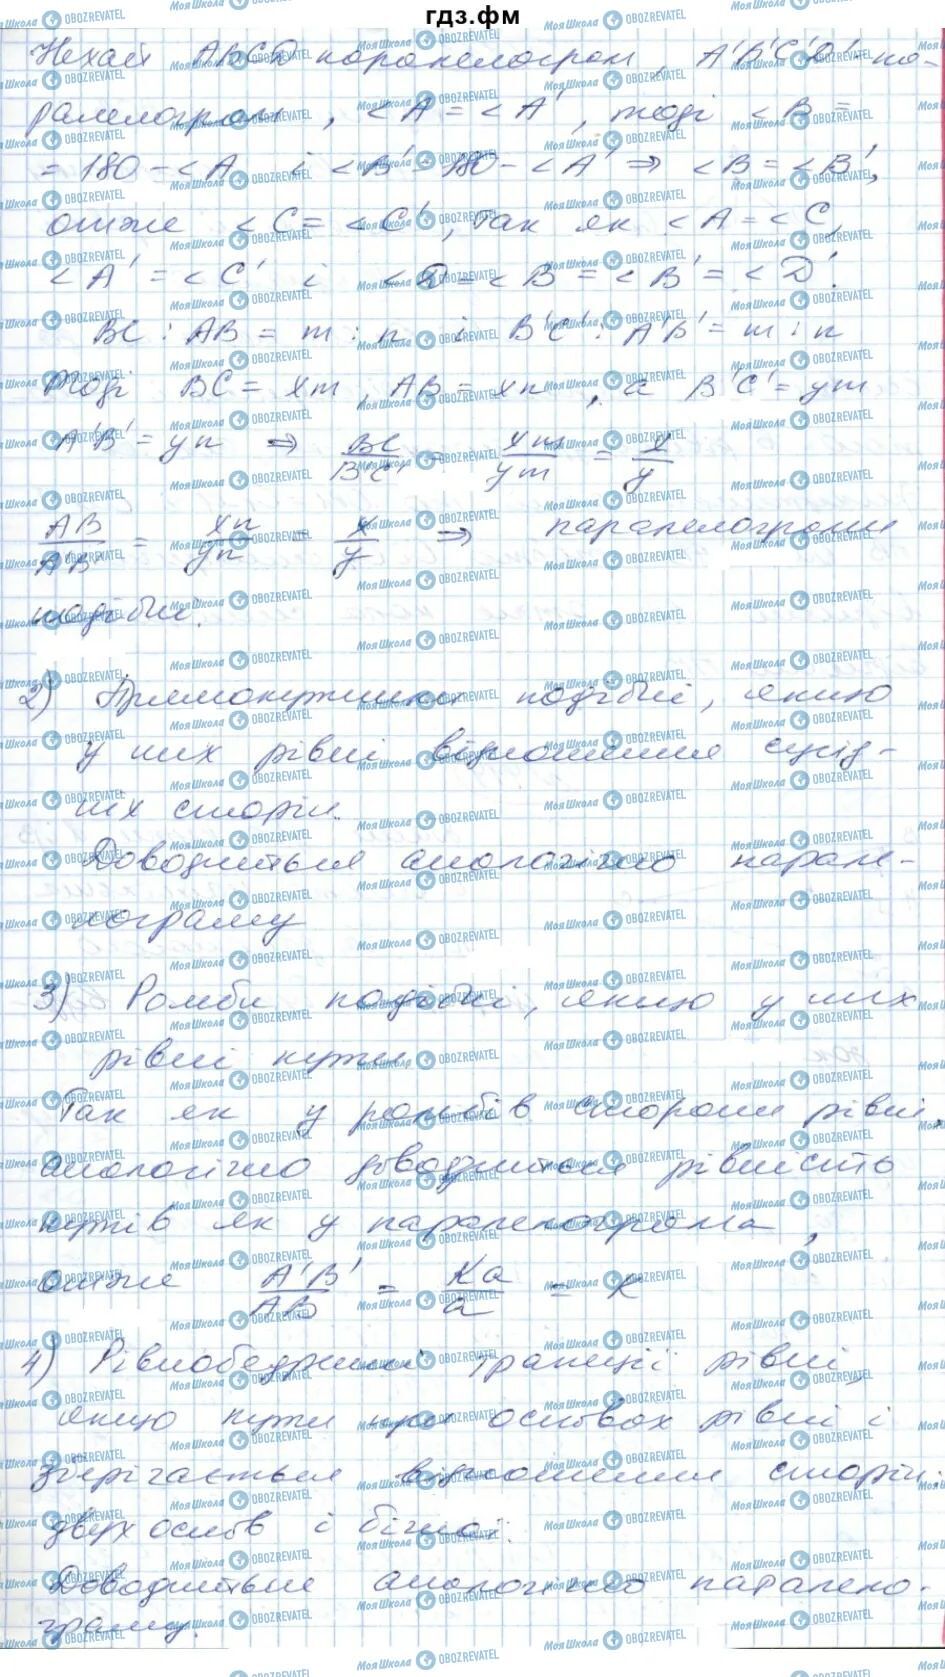 гдз.фм
Нехай ABCD паралелограм, A'B'C'D' - па-
ралелограм, <A = <A', тоді <B =
= 180 - <A і <B' = 180 - <A' => <B = <B',
отже <C = <C', так як <A = <C,
<A' = <C' і <D = <B = <B' = <D'.
BC : AB = m : n і B'C' : A'B' = m : n
Тоді BC = xm, AB = xn, а B'C' = ym
A'B' = yn => BC/B'C' = xm/ym = x/y
AB/A'B' = xn/yn = x/y => паралелограми
подібні.
2) Прямокутники подібні, якщо
у них рівні відношення сусід-
ніх сторін.
Доводиться аналогічно парале-
лограму
3) Ромби подібні, якщо у них
рівні кути.
Так як у ромбів сторони рівні,
аналогічно доводиться рівність
кутів як у паралелограма,
отже A'B'/AB = Ka/a = K
4) Рівнобедрені трапеції рівні,
якщо кути при основах рівні і
зберігається відношення сторін,
двух основ і бічної.
Доводиться аналогічно парало-
граму.